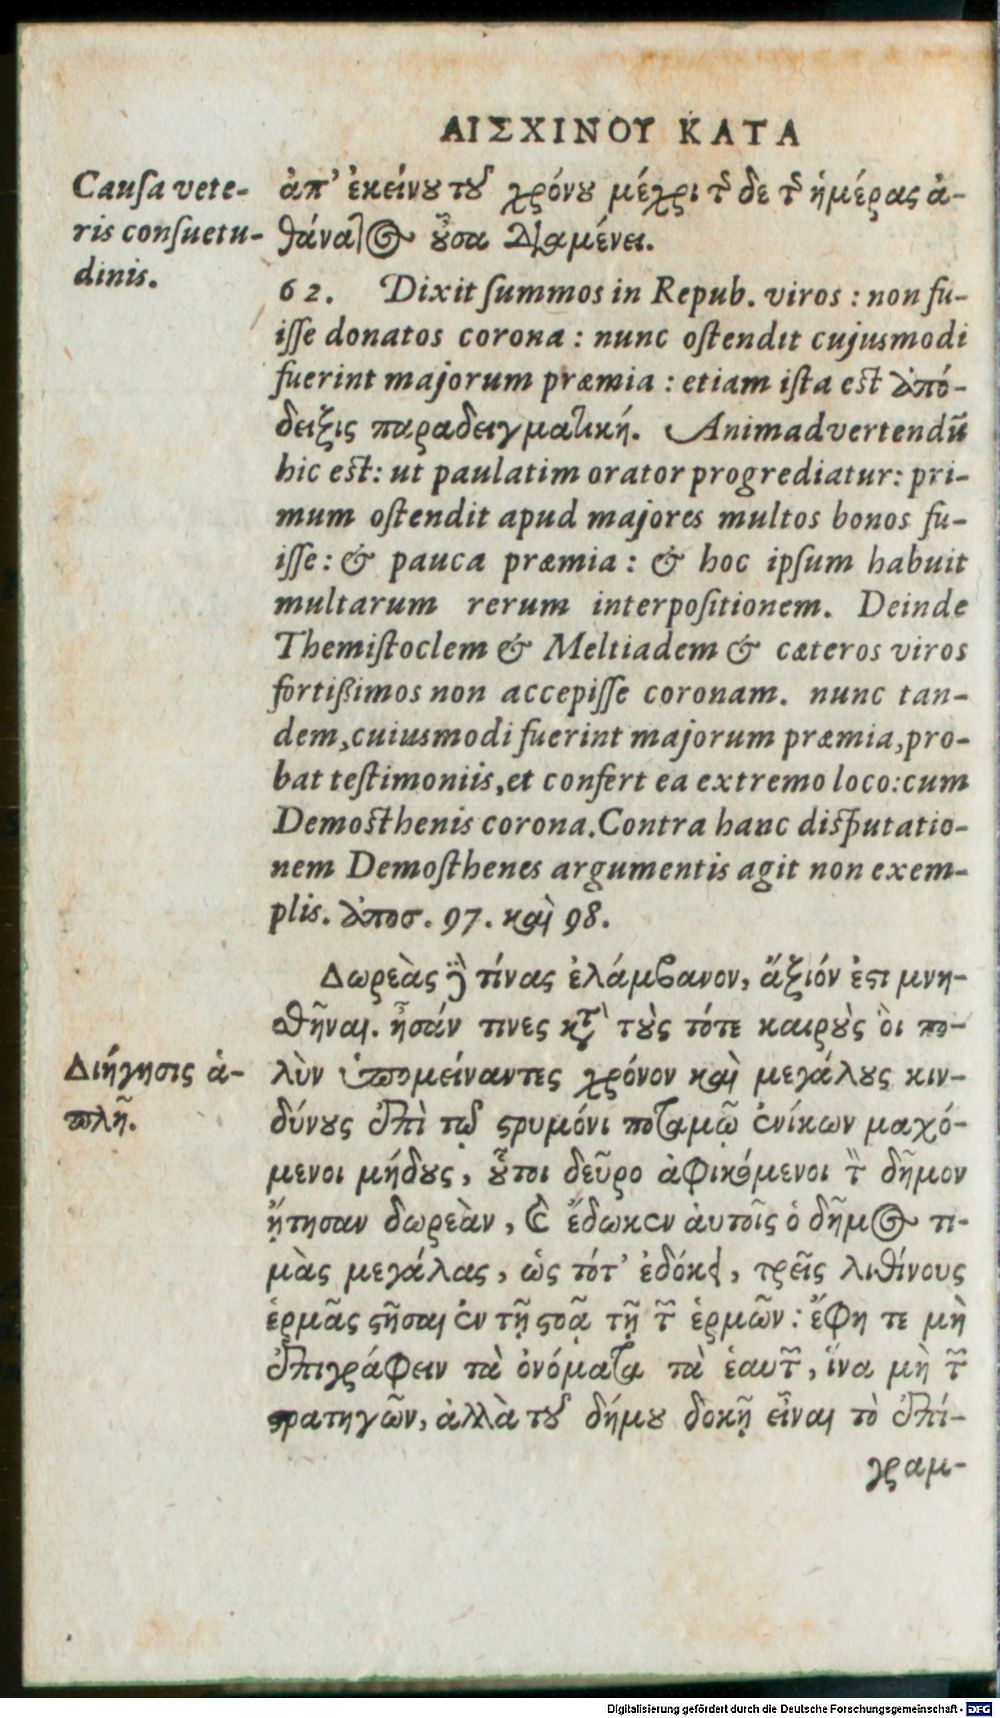 ΑΙΣΧΙΝΟΥ ΚΑΤΑ
Cauſa vete-
ris conſuetu-
dinis.
ἀπ' ἐκείνου τοῦ χρόνου μέχρι τῆσδε τῆς ἡμέρας ἀ-
θάνατος οὖσα διαμένει.
62. Dixit ſummos in Repub. viros : non fu-
iſſe donatos corona : nunc oſtendit cujusmodi
fuerint majorum præmia : etiam iſta est ἀπό-
δειξις παραδειγματική. Animadvertendū
hic est: ut paulatim orator progrediatur: pri-
mum oſtendit apud majores multos bonos fu-
iſſe : & pauca præmia : & hoc ipſum habuit
multarum rerum interpoſitionem. Deinde
Themiſtoclem & Meltiadem & cæteros viros
fortißimos non accepiſſe coronam. nunc tan-
dem, cuiusmodi fuerint majorum præmia, pro-
bat teſtimoniis, et confert ea extremo loco: cum
Demosthenis corona. Contra hanc disputatio-
nem Demoſthenes argumentis agit non exem-
plis. ἀποσ. 97. καὶ 98.
Δωρεὰς δὲ τίνας ἐλάμβανον, ἄξιόν ἐστι μνη-
σθῆναι. ἦσάν τινες κατὰ τοὺς τότε καιροὺς οἳ πο-
Διήγησις ἁ-
πλῆ.
λὺν ὑπομείναντες χρόνον καὶ μεγάλους κιν-
δύνους ἐπὶ τῷ στρυμόνι ποταμῷ ἐνίκων μαχό-
μενοι μήδους, οὗτοι δεῦρο ἀφικόμενοι τὸν δῆμον
ᾔτησαν δωρεὰν, καὶ ἔδωκεν αὐτοῖς ὁ δῆμος τι-
μὰς μεγάλας, ὡς τότ' ἐδόκει, τρεῖς λιθίνους
ἑρμᾶς στῆσαι ἐν τῇ στοᾷ τῇ τῶν ἑρμῶν : ἔφη τε μὴ
ἐπιγράφειν τὰ ὀνόματα τὰ ἑαυτῶν, ἵνα μὴ τῶν
στρατηγῶν, ἀλλὰ τοῦ δήμου δοκῇ εἶναι τὸ ἐπί-
γραμ-
Digitalisierung gefördert durch die Deutsche Forschungsgemeinschaft - DFG